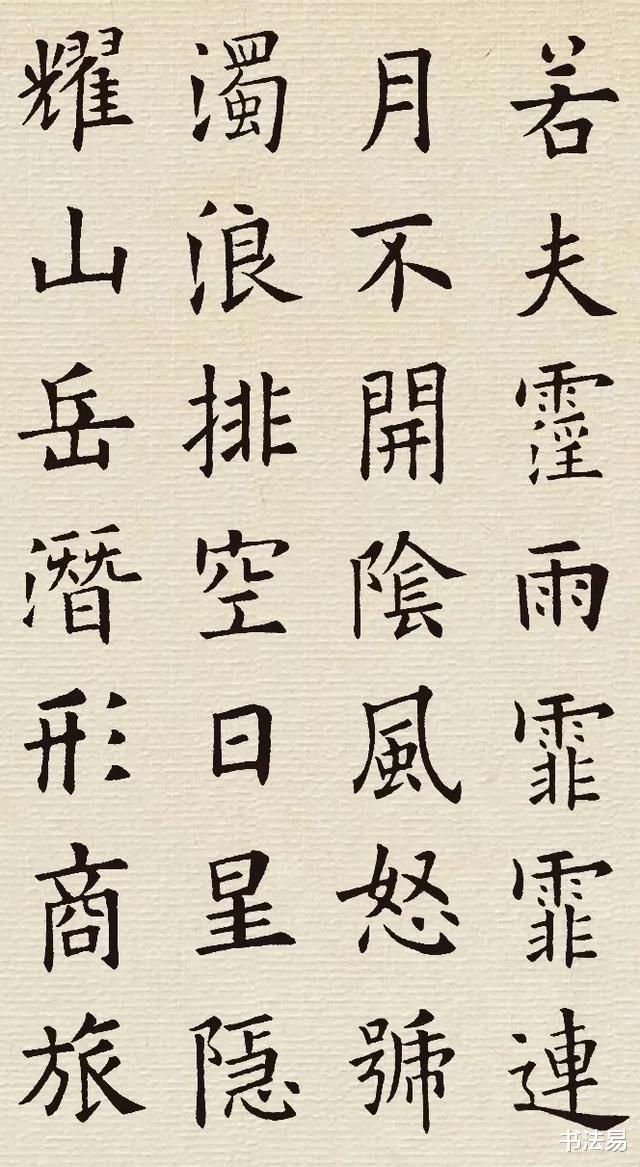 若夫霪雨霏霏連
月不開陰風怒號
濁浪排空日星隐
耀山岳潛形商旅
书法易